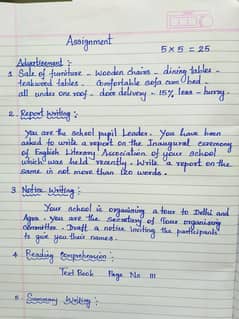 Assignment
5 x 5 = 25
Advertisement :-
1 Sale of furniture - wooden chairs - dining tables -
teakwood tables - comfortable sofa cum bed -
all under one roof - door delivery - 15% less - hurry.
2. Report Writing :-
You are the school pupil Leader. You have been
asked to write a report on the Inaugural ceremony
of English Literary Association of your school
which was held recently. Write a report on the
same in not more than 120 words.
3 Notice Writing :
Your school is organising a tour to Delhi and
Agra. You are the secretary of Tour organising
committee. Draft a notice inviting the participants
to give you their names.
4 Reading Comprehension :
Text Book Page No 111
5 Summary Writing :